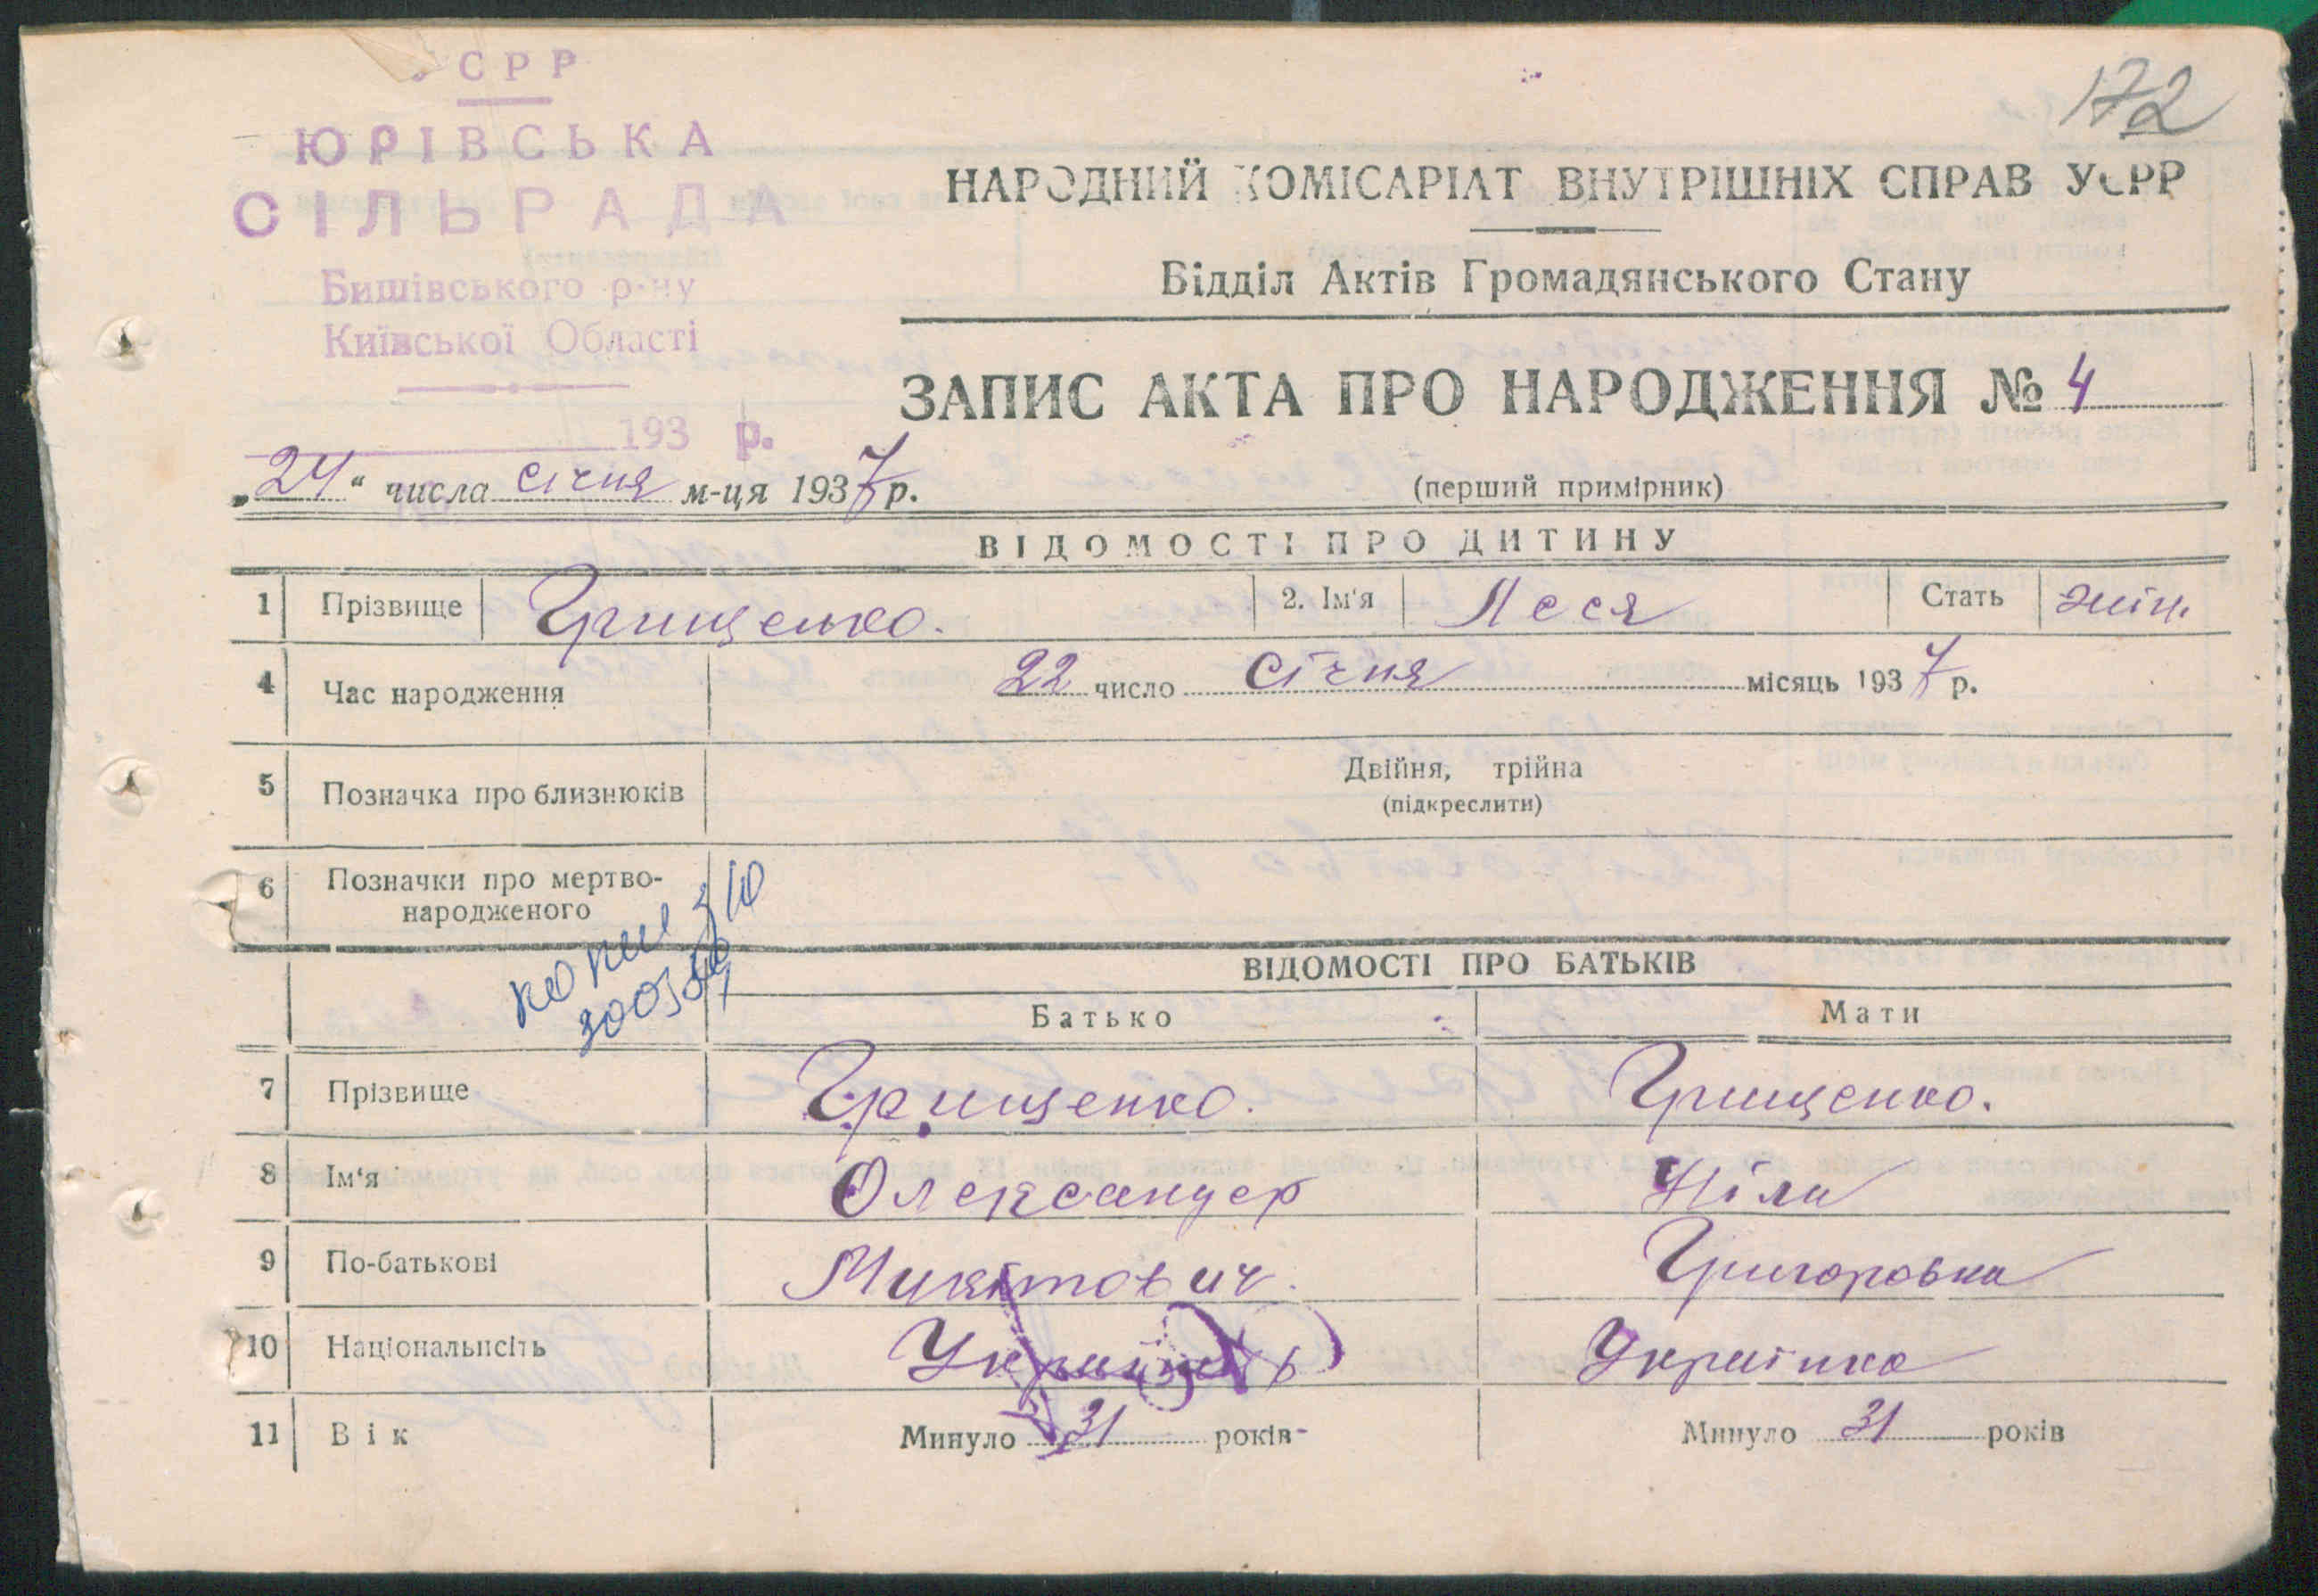 СРР
172
ЮРІВСЬКА
СІЛЬРАДА
Бишівського р-ну
Київської Області
193 р.
НАРОДНИЙ КОМІСАРІАТ ВНУТРІШНІХ СПРАВ УСРР
Відділ Актів Громадянського Стану
ЗАПИС АКТА ПРО НАРОДЖЕННЯ № 4
„24“ числа січня м-ця 1937 р.
(перший примірник)
ВІДОМОСТІ ПРО ДИТИНУ
1 Прізвище Грищенко. 2. Ім'я Леся Стать жін.
4 Час народження 22 число січня місяць 1937 р.
5 Позначка про близнюків Двійня, трійна
(підкреслити)
6 Позначки про мертво-
народженого
ВІДОМОСТІ ПРО БАТЬКІВ
Батько Мати
7 Прізвище Грищенко. Грищенко.
8 Ім'я Олександер Ніла
9 По-батькові Григоровна
10 Національність Українець Українка
11 Вік Минуло 31 років Минуло 31 років